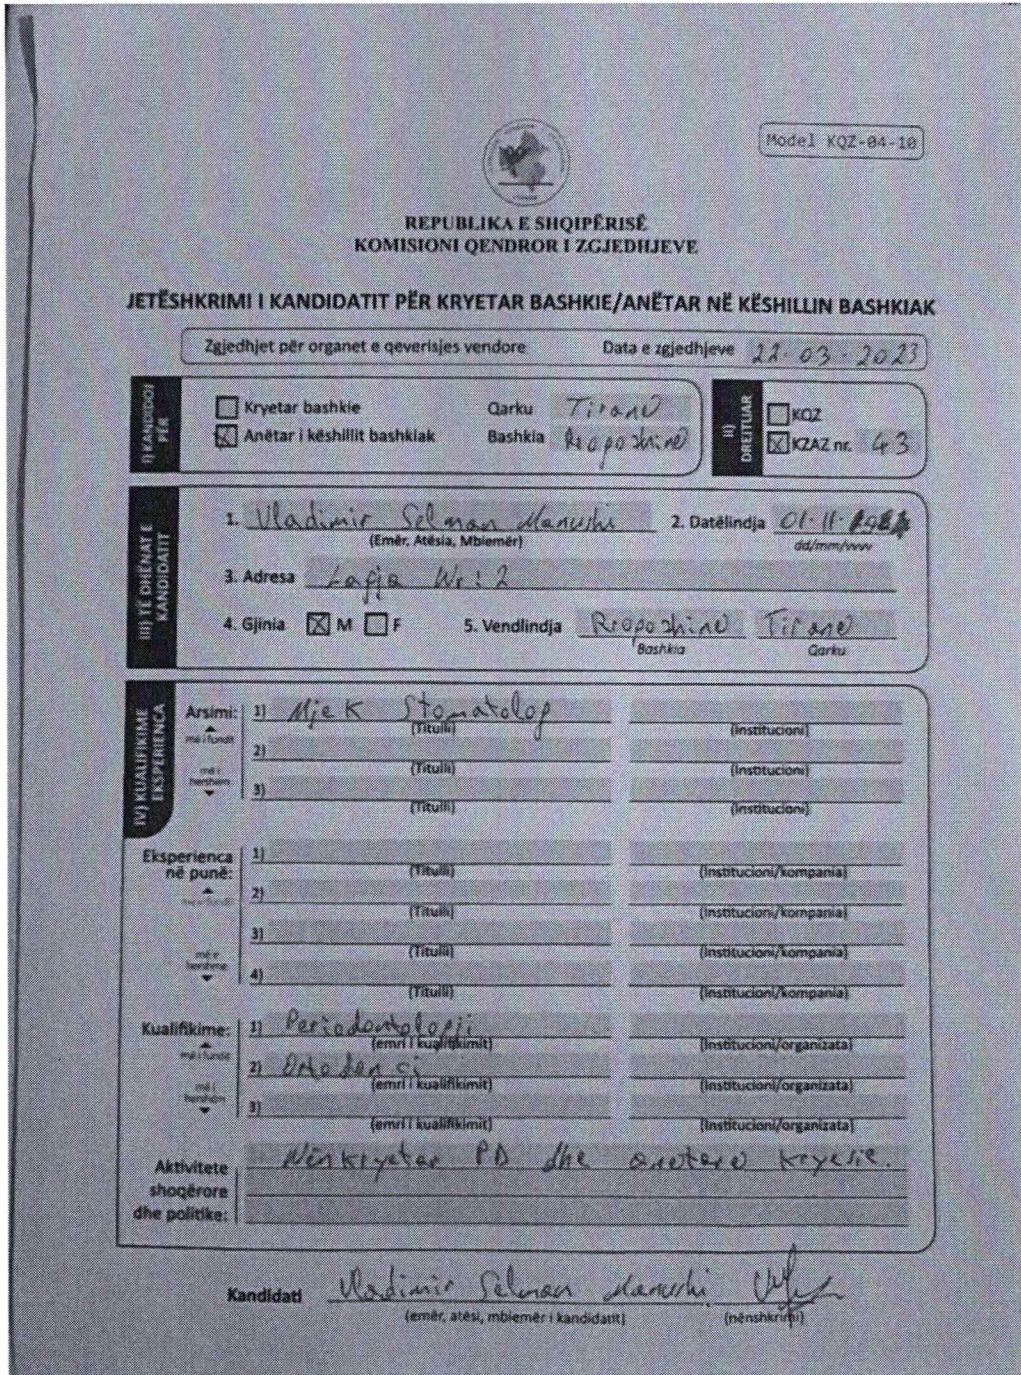 Model KQZ-04-10
REPUBLIKA E SHQIPËRISË
KOMISIONI QENDROR I ZGJEDHJEVE
JETËSHKRIMI I KANDIDATIT PËR KRYETAR BASHKIE/ANËTAR NË KËSHILLIN BASHKIAK
Zgjedhjet për organet e qeverisjes vendore Data e zgjedhjeve 22-03-2023
I) KANDIDOJ PËR
Kryetar bashkie Qarku Tiranë
Anëtar i këshillit bashkiak Bashkia Rrogozhinë
II) DREJTUAR
KQZ
KZAZ nr. 43
III) TË DHËNAT E KANDIDATIT
1. Vladimir Selman Manushi 2. Datëlindja 01-11-
(Emër, Atësia, Mbiemër) dd/mm/vvvv
3. Adresa Lagja Nr: 2
4. Gjinia M F 5. Vendlindja Rrogozhinë Tiranë
Bashkia Qarku
IV) KUALIFIKIME EKSPERIENCA
Arsimi: 1) Mjek Stomatolog
(Titulli) (Institucioni)
më i fundit
2)
(Titulli) (Institucioni)
më i hershëm
3)
(Titulli) (Institucioni)
Eksperienca në punë: 1)
(Titulli) (Institucioni/kompania)
2)
(Titulli) (Institucioni/kompania)
3)
(Titulli) (Institucioni/kompania)
më e hershme
4)
(Titulli) (Institucioni/kompania)
Kualifikime: 1) Periodontologji
(emri i kualifikimit) (Institucioni/organizata)
më i fundit
2)
(emri i kualifikimit) (Institucioni/organizata)
më i hershëm
3)
(emri i kualifikimit) (Institucioni/organizata)
Aktivitete shoqërore dhe politike: Nënkryetar PD dhe kryesie.
Kandidati Vladimir Selman Manushi
(emër, atësi, mbiemër i kandidatit) (nënshkrimi)